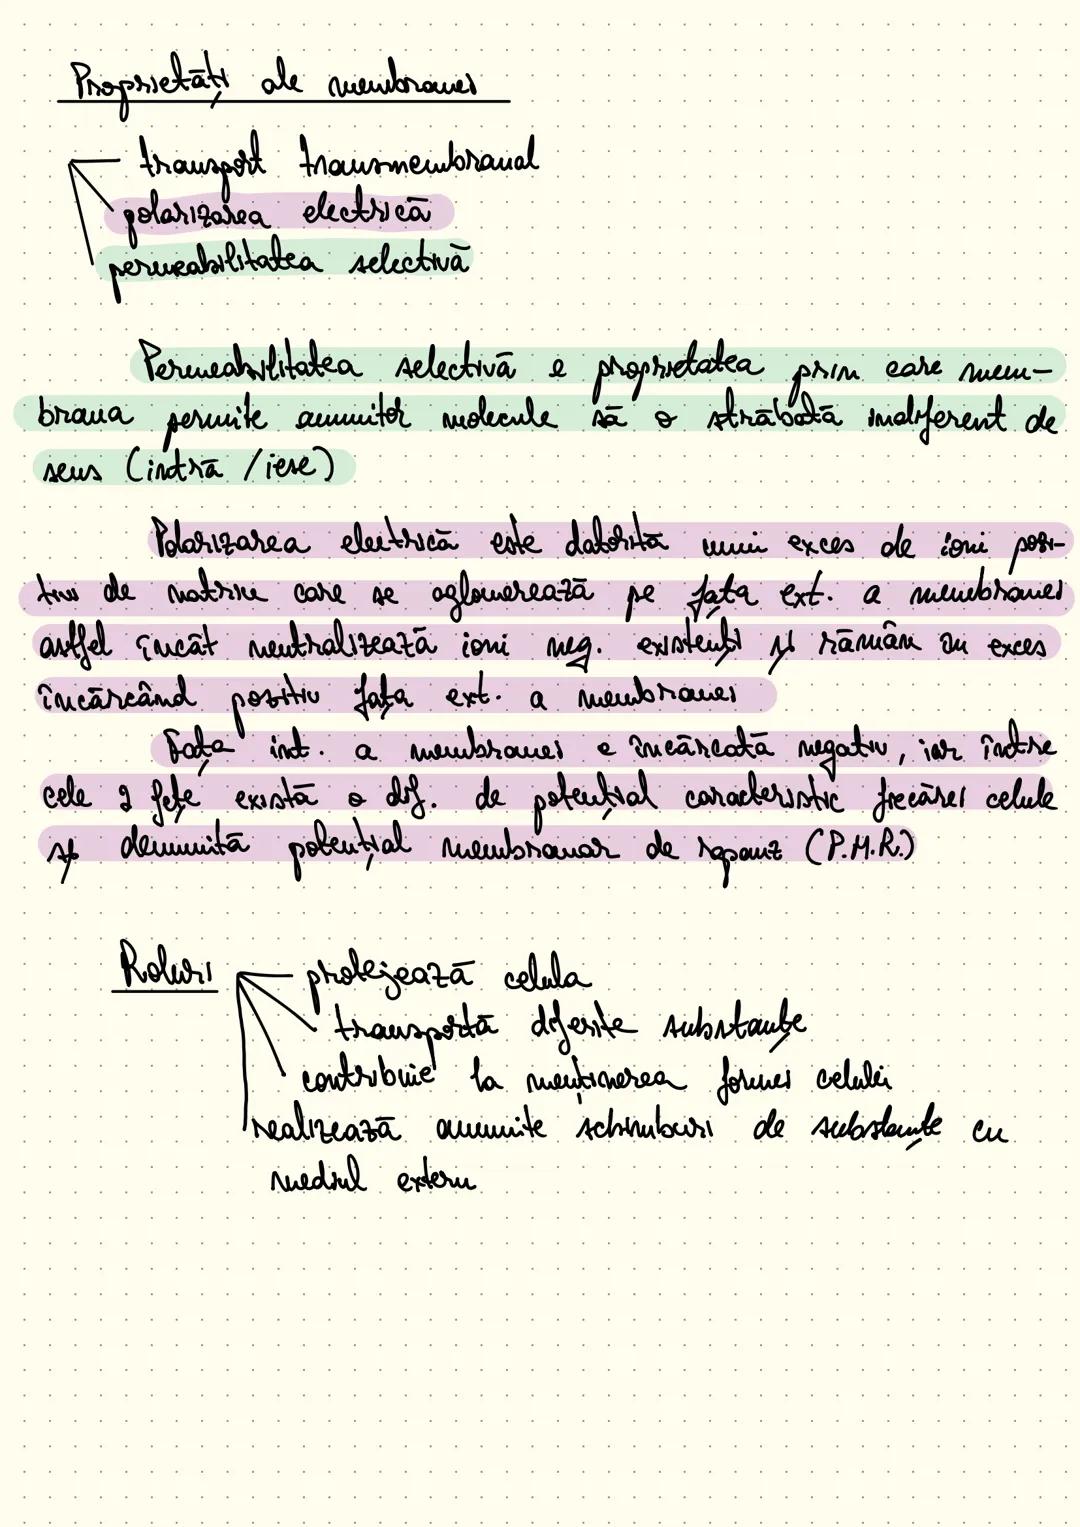 Proprietăți ale membranei
transport transmembranal
polarizarea electrică
permeabilitatea selectivă
Permeabilitatea selectivă e proprietatea prin care mem-
brana permite anumitor molecule să o străbată indiferent de
sens (intră / iese)
Polarizarea electrică este datorită unui exces de ioni pozi-
tivi de natriu care se aglomerează pe fața ext. a membranei
astfel încât neutralizează ioni neg. existenți și rămân în exces
încărcând pozitiv fața ext. a membranei
Fața int. a membranei e încărcată negativ, iar între
cele 2 fețe există o dif. de potențial caracteristic fiecărei celule
și denumită potențial membranar de repauz (P.M.R.)
Roluri
protejează celula
transportă diferite substanțe
contribuie la menținerea formei celulei
realizează anumite schimburi de substanțe cu
mediul extern